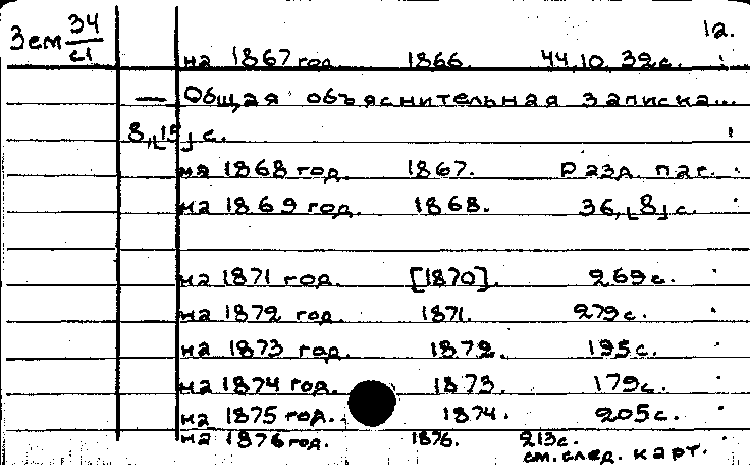 Зем 34/с1 12.
на 1867 год 1866. 44,10,39с.
— Общая объяснительная записка...
8,[15] с.
на 1868 год. 1867. Разд. паг.
на 1869 год. 1868. 36,[8] с.
на 1871 год. [1870]. 269с.
на 1872 год. 1871. 279с.
на 1873 год. 1872. 195с.
на 1874 год. 1873. 179с.
на 1875 год. 1874. 205с.
на 1876 год. 1876. 213с.
см. след. карт.